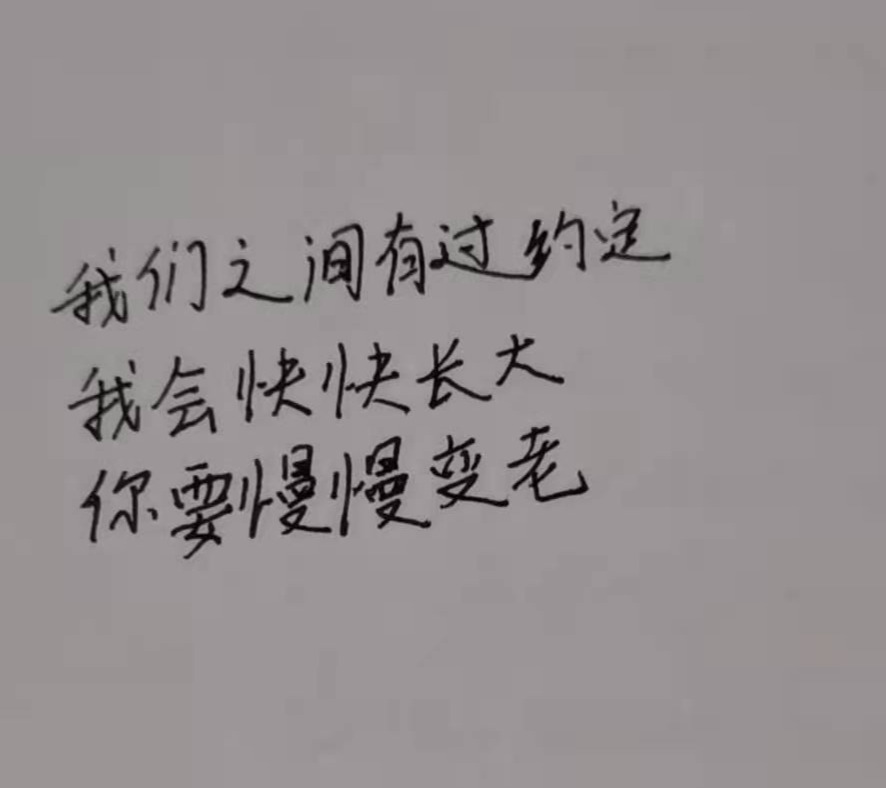 我们之间有过约定
我会快快长大
你要慢慢变老